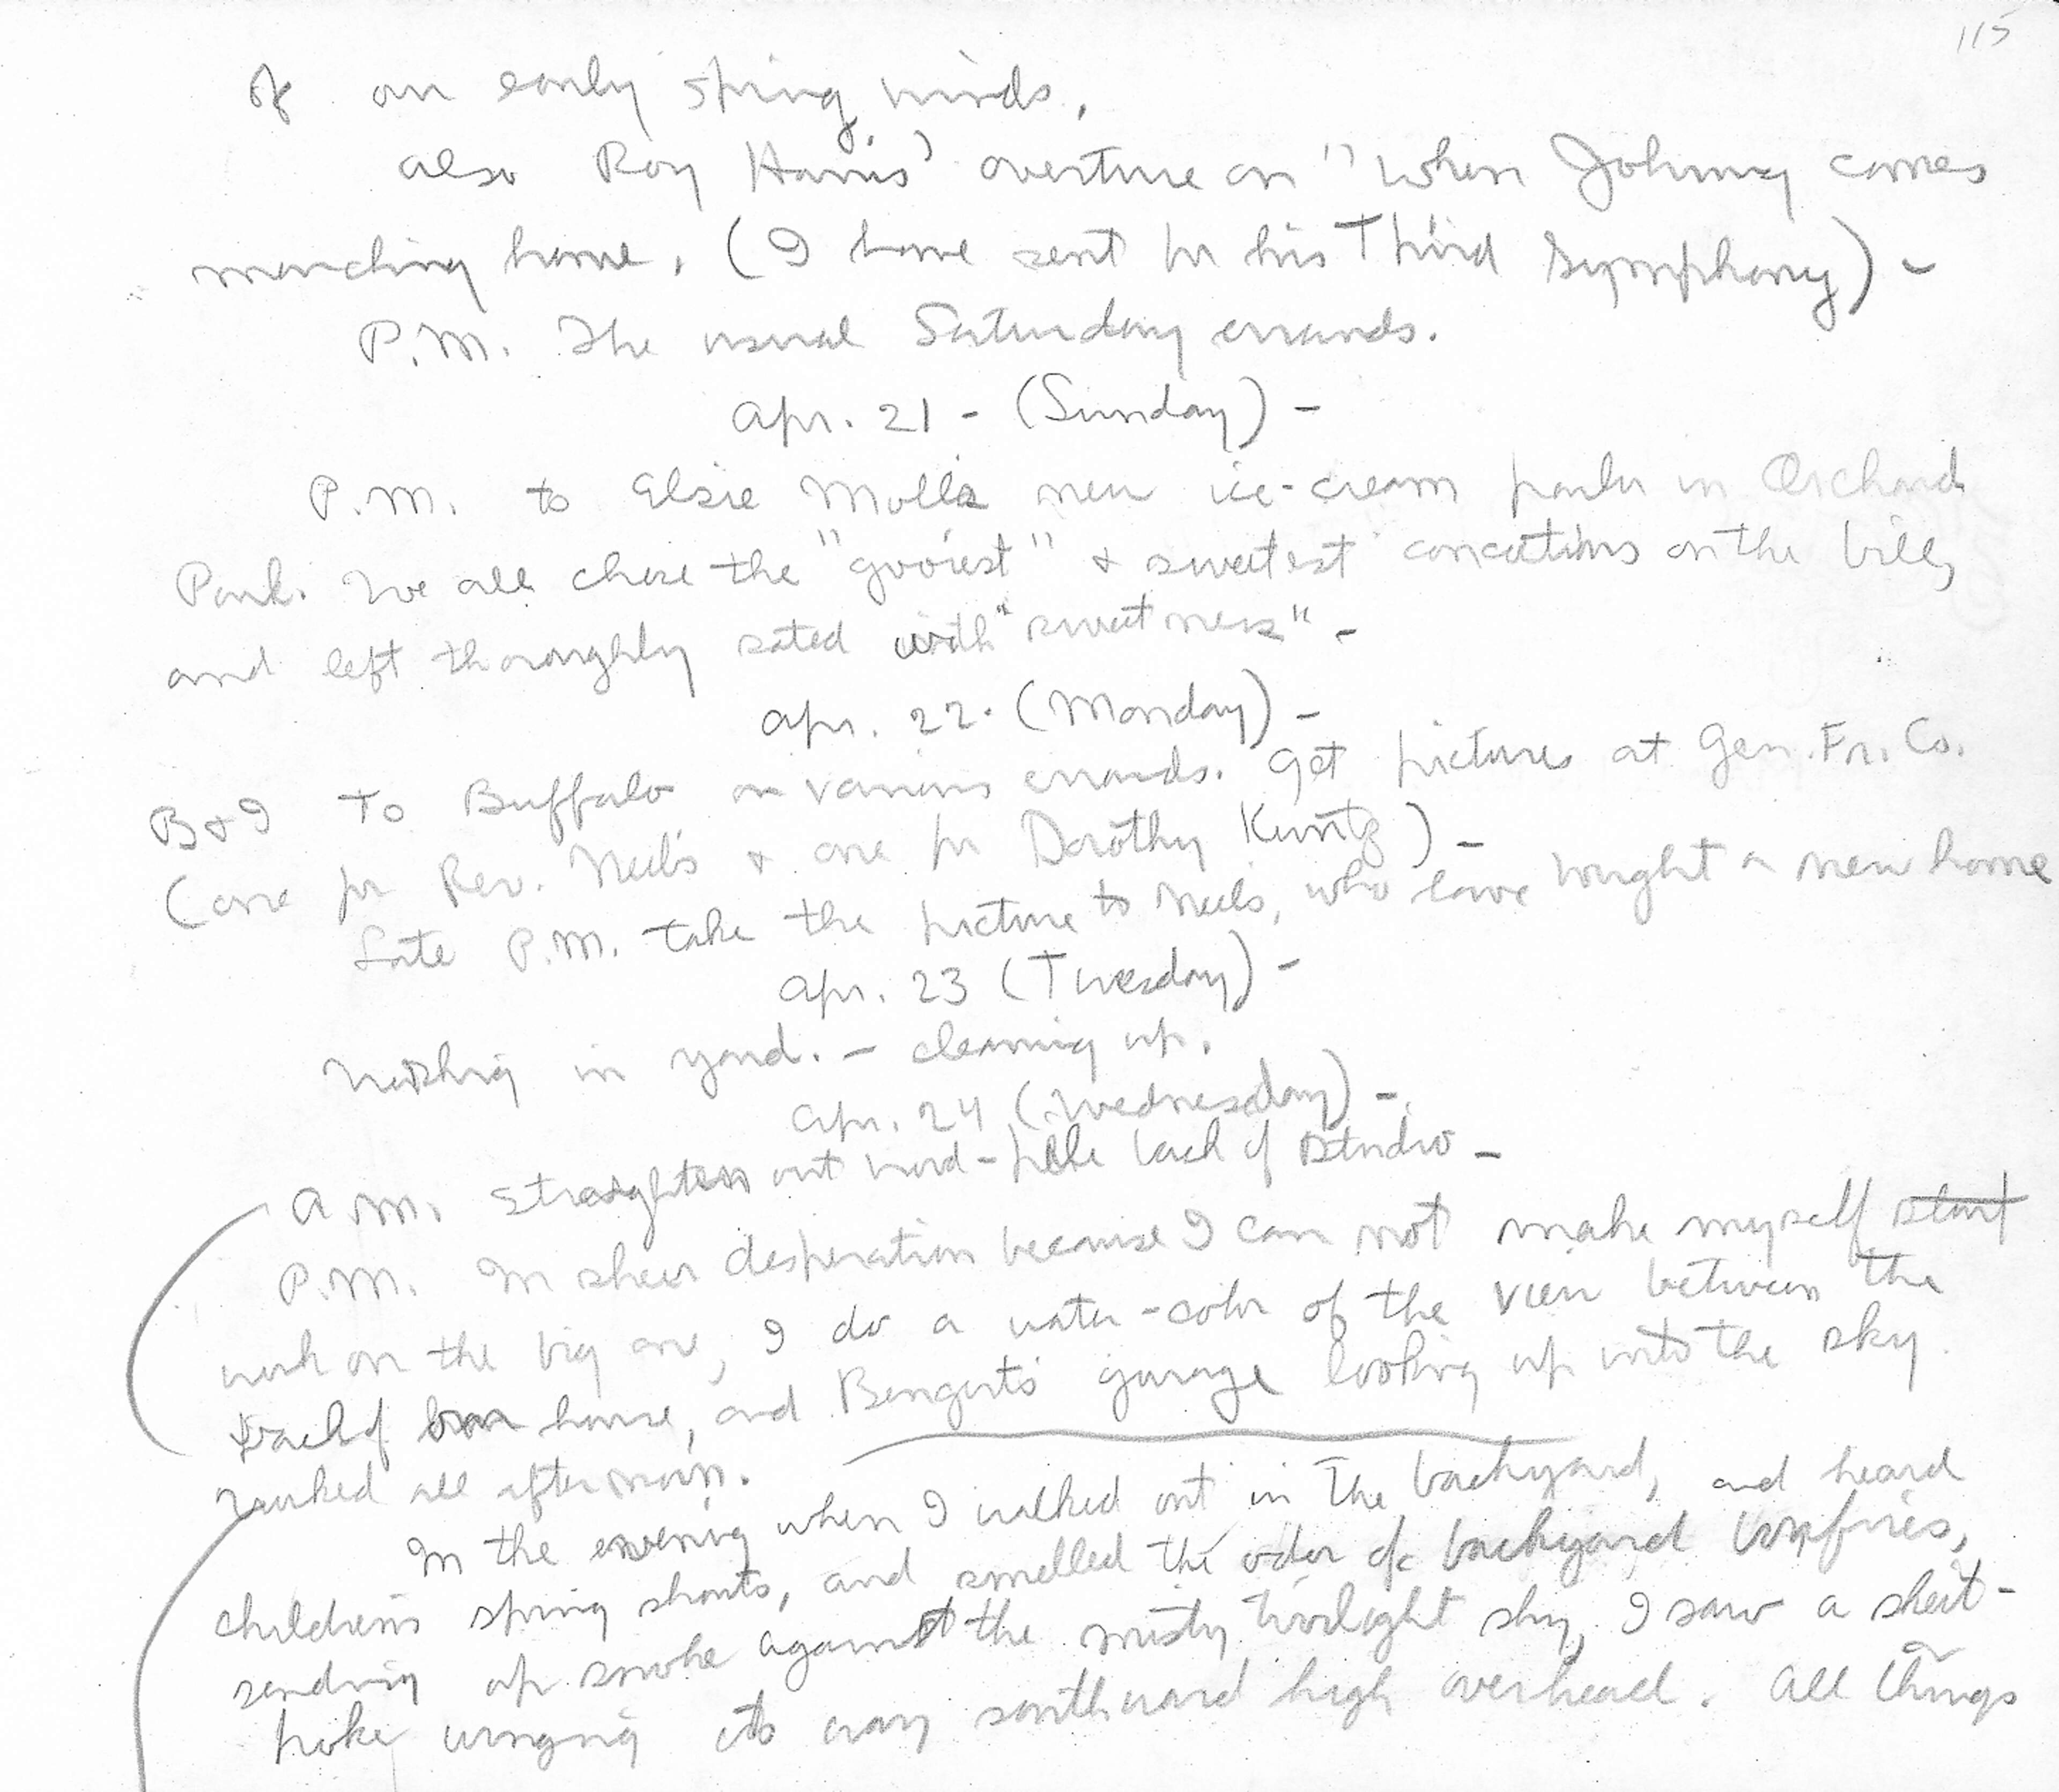 115
of an early spring winds,
also Roy Harris' overture on "When Johnny comes
marching home. (I have sent for his Third Symphony) -
P.M. The usual Saturday errands.
Apr. 21 - (Sunday) -
P.M. to Elsie Moll's new ice-cream parlor in Orchard
Park. We all chose the "gooiest" & sweetest concoctions on the bill,
and left thoroughly sated with "sweetness" -
Apr. 22. (Monday) -
B & I to Buffalo on various errands. Get pictures at Gen. Fr. Co.
(one for Rev. Neils & one for Dorothy Kuntz) -
Late P.M. take the picture to Neils, who have bought a new home
Apr. 23 (Tuesday) -
in yard. - cleaning up.
Apr. 24 (Wednesday) -
A.M. Straighten out wood-pile back of studio -
P.M. In sheer desperation because I can not make myself start
work on the big one, I do a water-color of the view between the
back of house, and Bengert's garage looking up into the sky.
Worked all afternoon.
In the evening when I walked out in the backyard, and heard
children's spring shouts, and smelled the odor of backyard bonfires,
sending up smoke against the misty twilight sky, I saw a sheit-
poke winging its way southward high overhead. All things